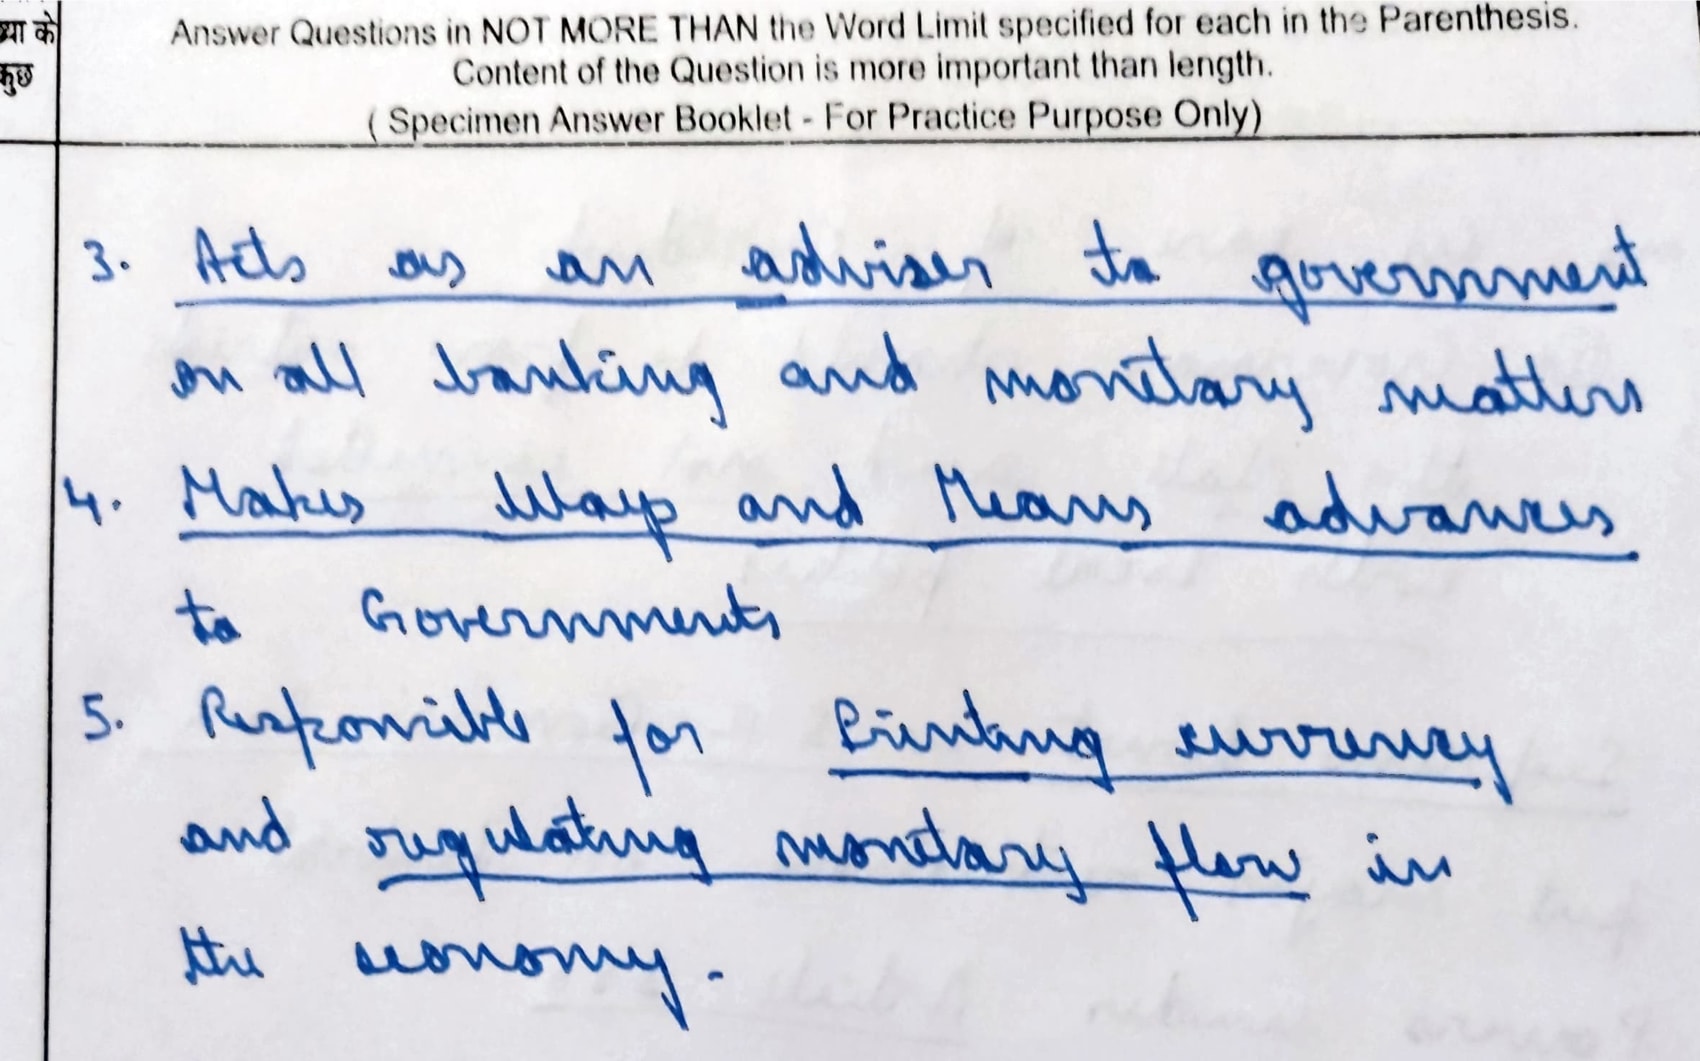 ख्या के
कुछ
Answer Questions in NOT MORE THAN the Word Limit specified for each in the Parenthesis.
Content of the Question is more important than length.
( Specimen Answer Booklet - For Practice Purpose Only)
3. Acts as an adviser to government
on all banking and monetary matters
4. Makes Ways and Means advances
to Governments
5. Responsible for Printing currency
and regulating monetary flow in
the economy.